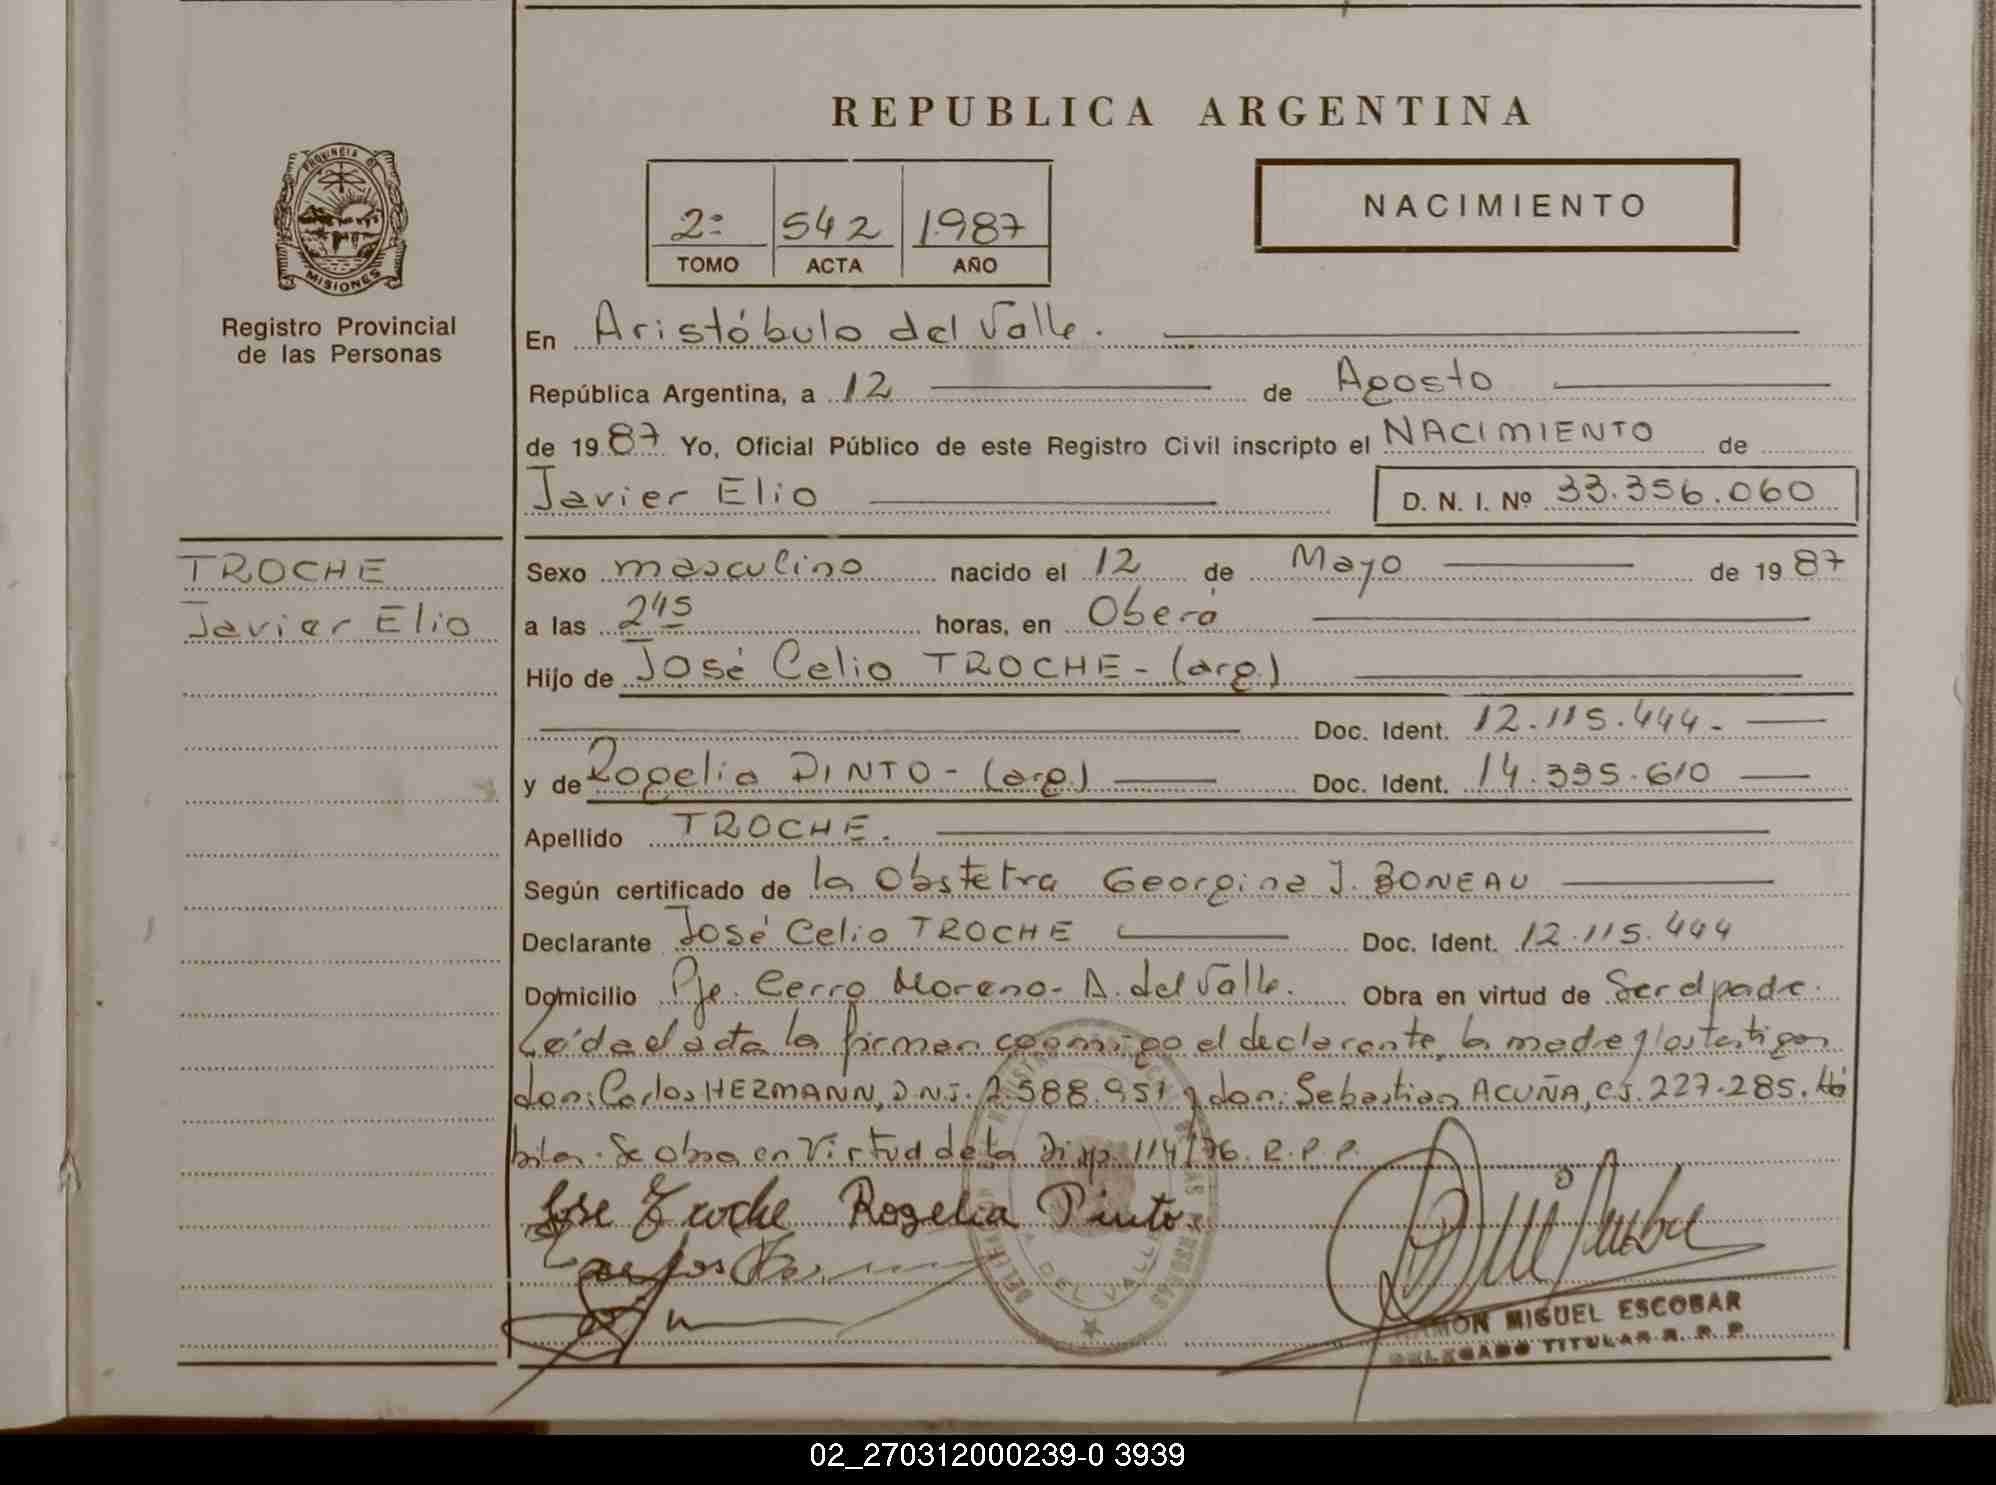 REPUBLICA ARGENTINA
PROVINCIA DE MISIONES
Registro Provincial
de las Personas
2º 542 1987
TOMO ACTA AÑO
NACIMIENTO
En Aristóbulo del Valle.
República Argentina, a 12 de Agosto
de 1987 Yo, Oficial Público de este Registro Civil inscripto el NACIMIENTO de
Javier Elio D. N. I. Nº 33.356.060
TROCHE
Javier Elio
Sexo masculino nacido el 12 de Mayo de 1987
a las 245 horas, en Oberá
Hijo de José Celio TROCHE - (arg)
Doc. Ident. 12.115.444.-
y de Rogelia PINTO - (arg.) Doc. Ident. 14.395.610
Apellido TROCHE.
Según certificado de la Obstetra Georgina J. BONEAU
Declarante José Celio TROCHE Doc. Ident. 12.115.444
Domicilio Pje. Cerro Moreno - A. del Valle. Obra en virtud de Ser el padre.
Leída el acta la firman conmigo el declarante, la madre y los testigos
don: Carlos HERMANN, D.N.I. 7.588.951 y don: Sebastian ACUÑA, C.I. 227.285. Há
biles. Se obra en Virtud de la Disp. 114/76. R.P.P.
Jose Troche Rogelia Pinto
DEL VALLE
RAMON MIGUEL ESCOBAR
DELEGADO TITULAR R. P. P.
02_270312000239-0 3939